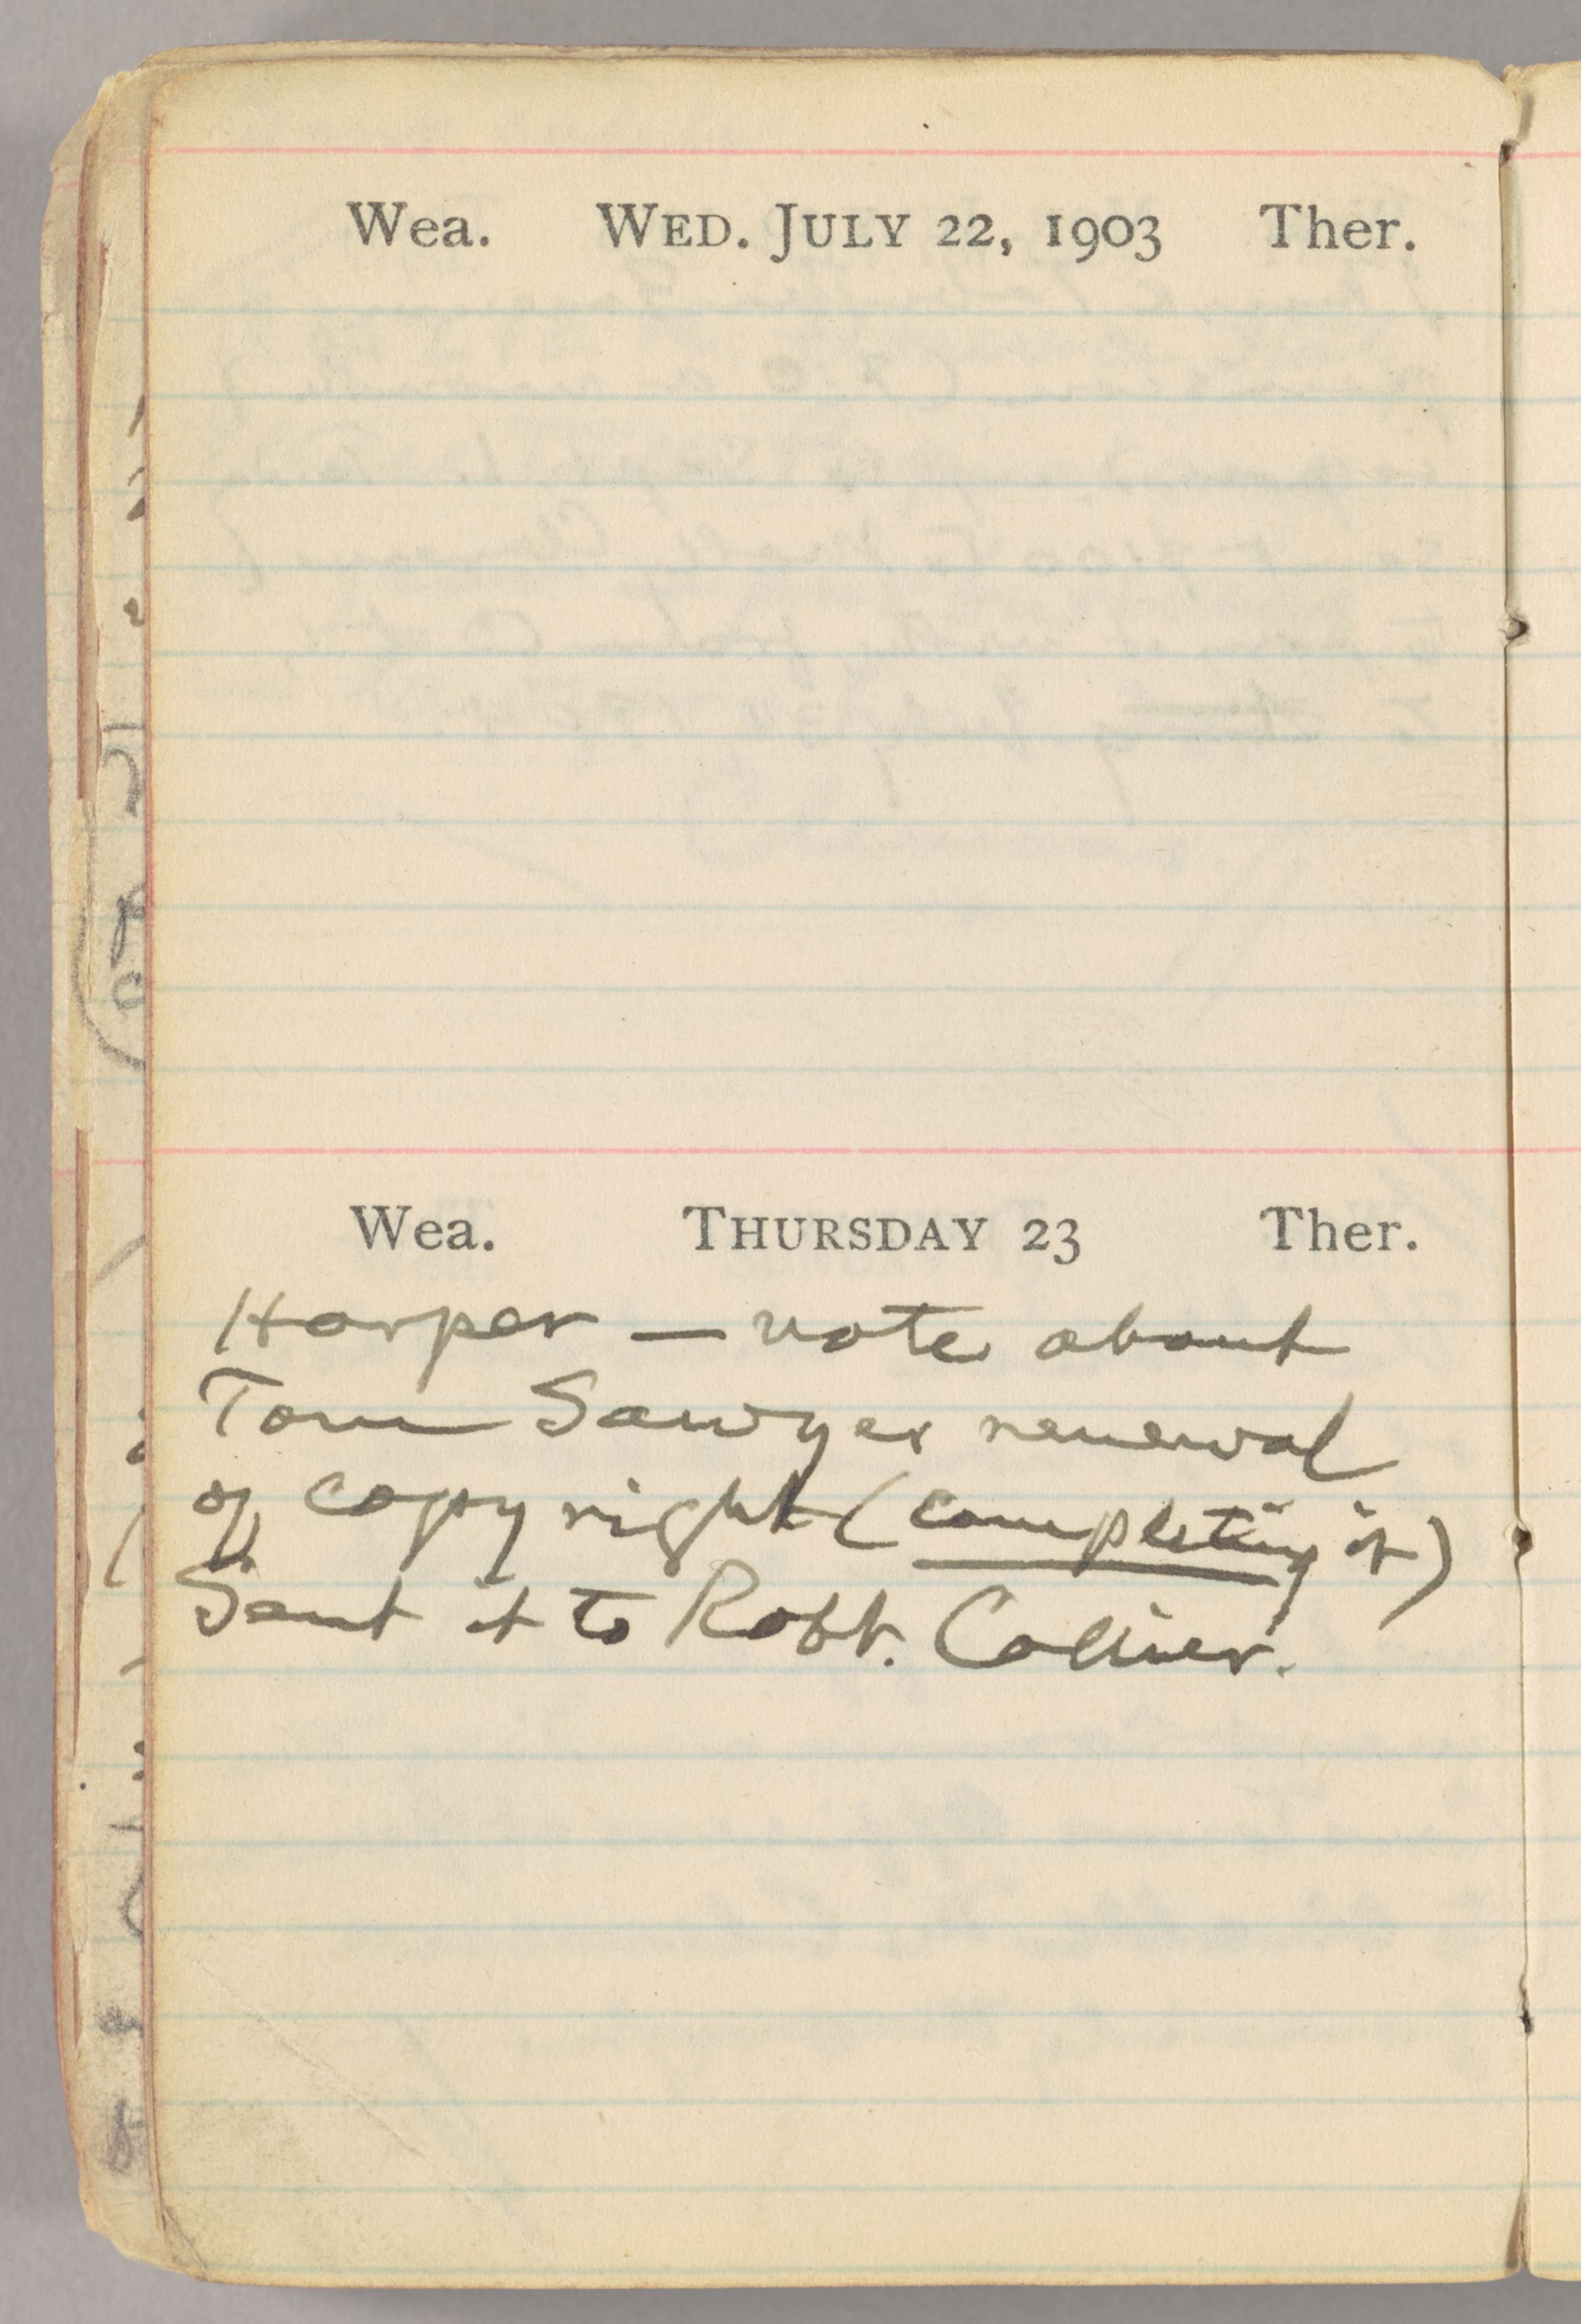 Wea. WED. JULY 22, 1903 Ther.
Wea. THURSDAY 23 Ther.
Harper — note about
Tom Sawyer renewal
of copyright (completing it)
Sent it to Robt. Collier.